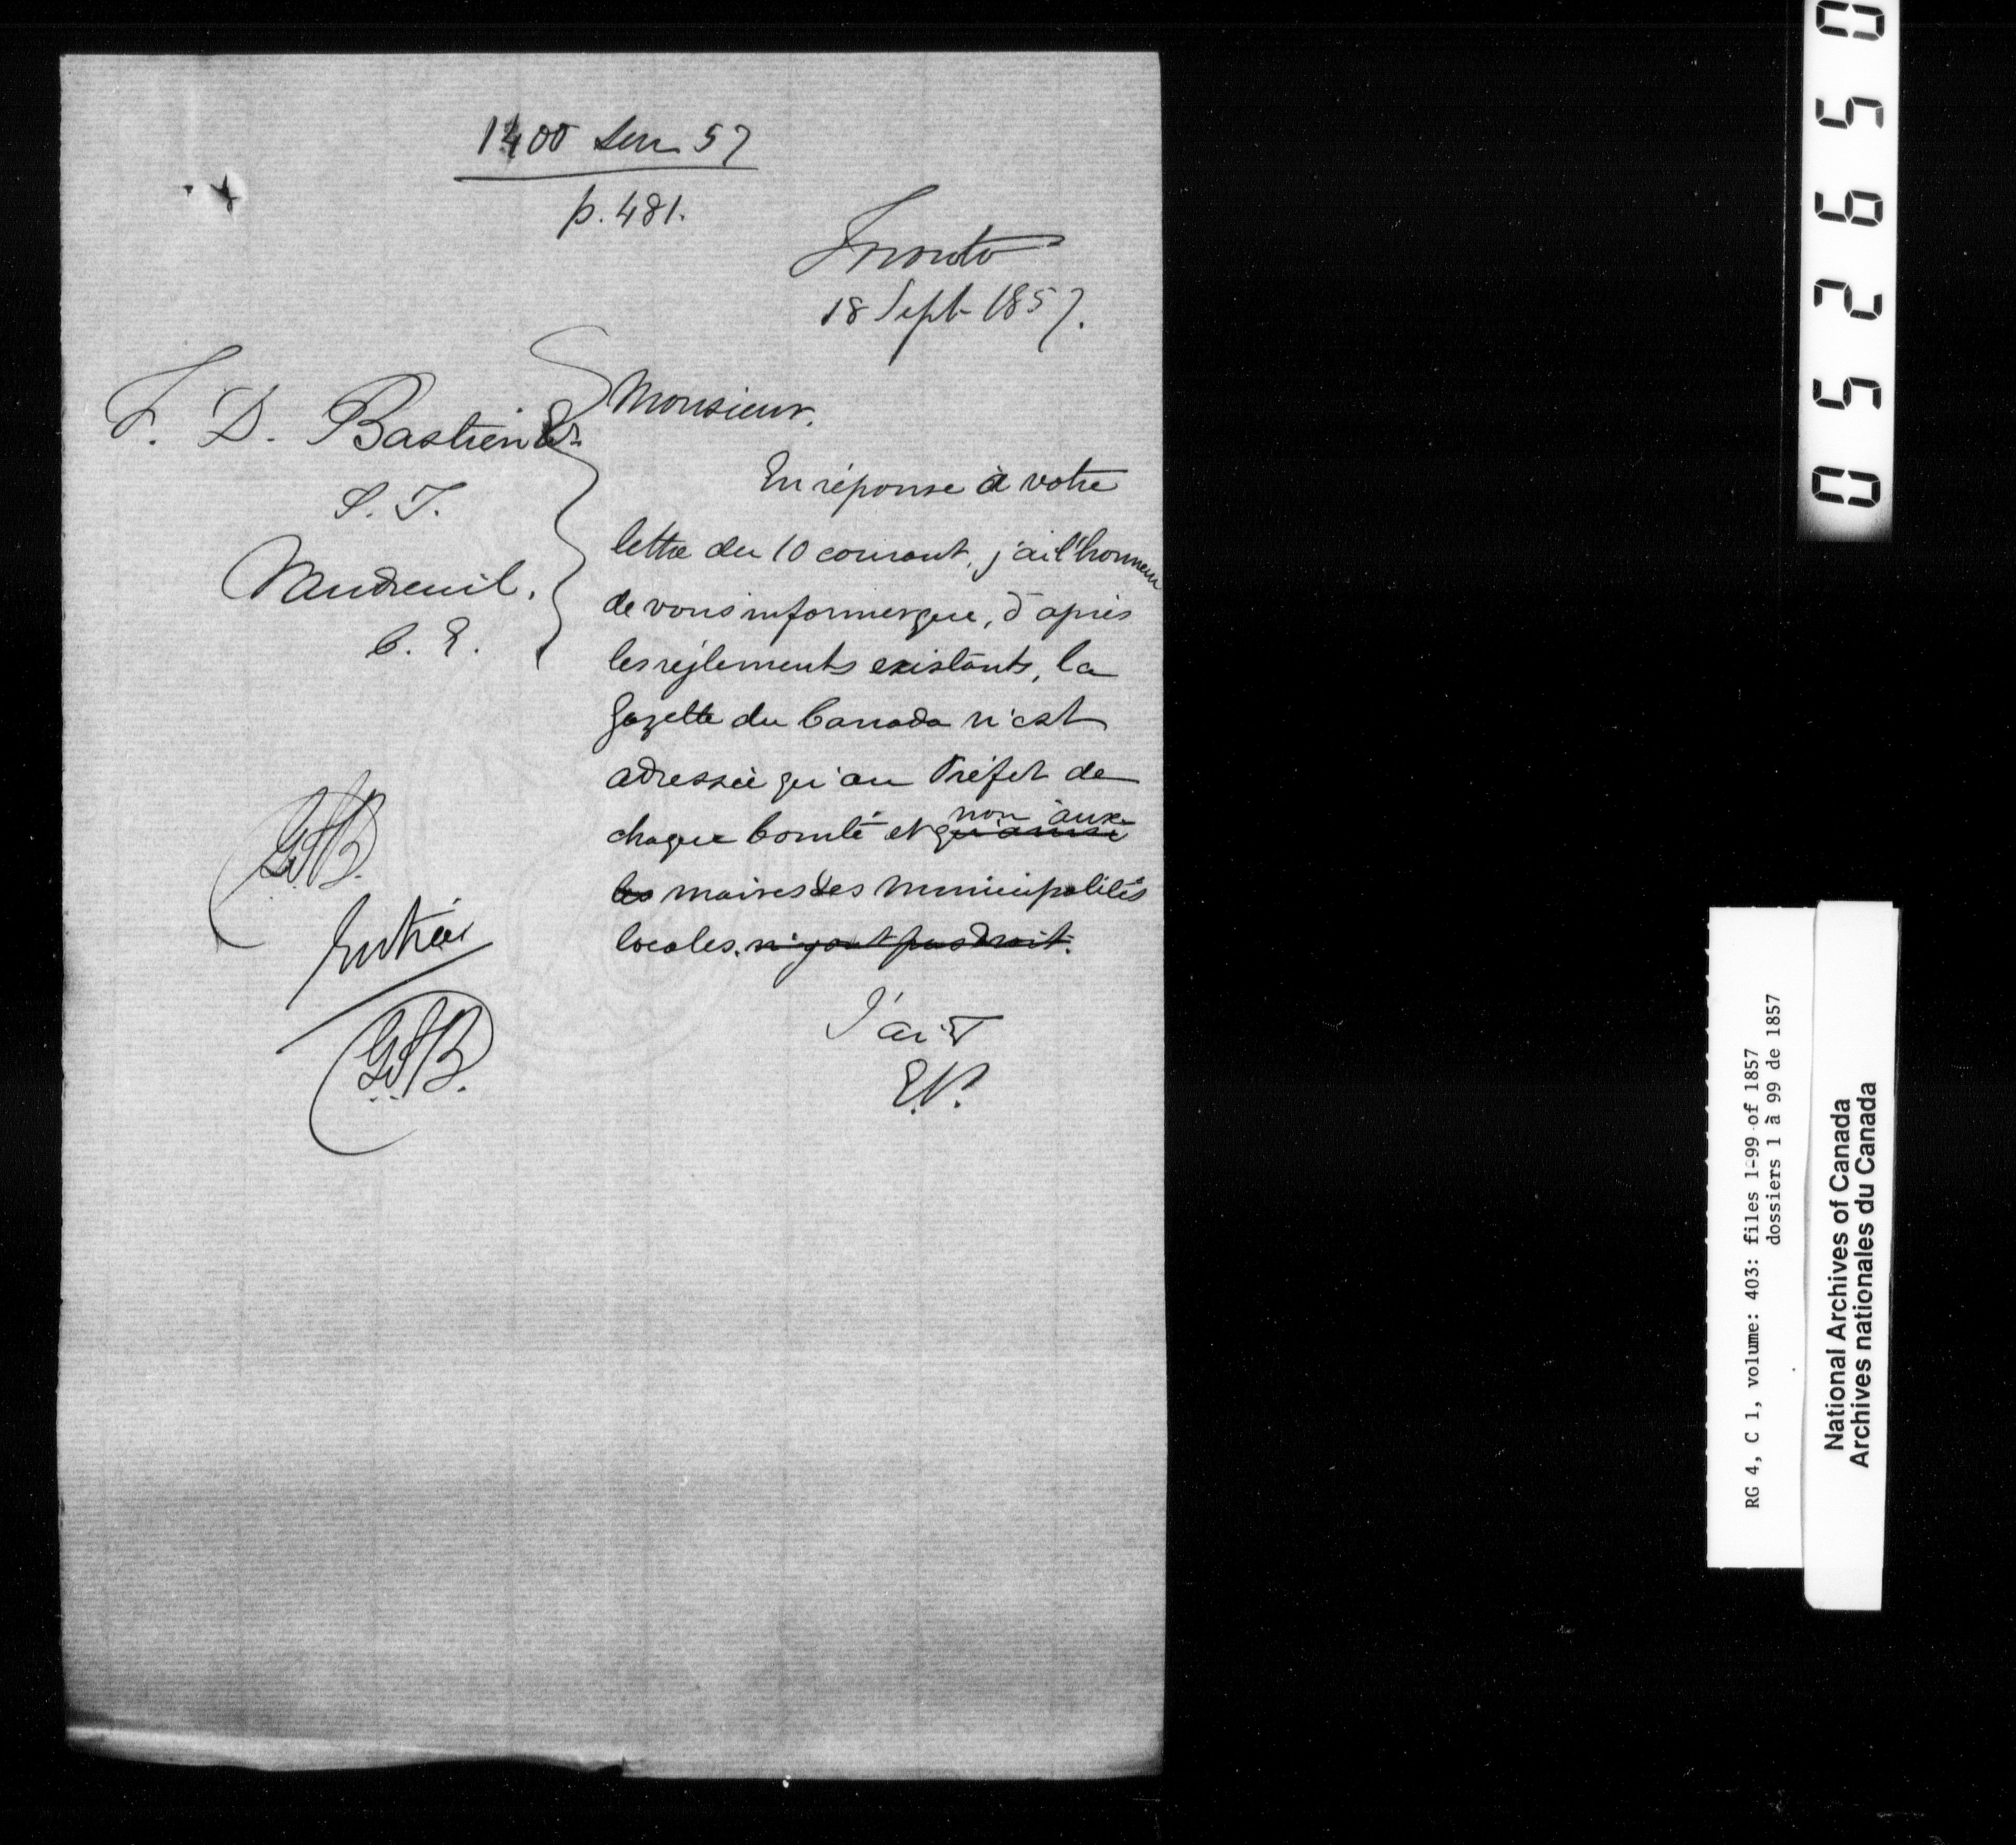 1400 Lu 57
p. 481.
Toronto
18 Sept 1857.
F. D. Bastien Er
S. T.
Vaudreuil.
C. E.
Monsieur.
En réponse à votre
lettre du 10 courant, j'ai l'honneur
de vous informer que, d'après
les règlements existants, la
Gazette du Canada n'est
adressée qu'au Préfet de
non aux
chaque Comté et qu'ainsi
les maires des municipalités
locales. n'y ont pas droit.
J'ai &
E.P.
Entrée
RG 4, C 1, volume: 403: files 1-99 of 1857
dossiers 1 à 99 de 1857
National Archives of Canada
Archives nationales du Canada
052650